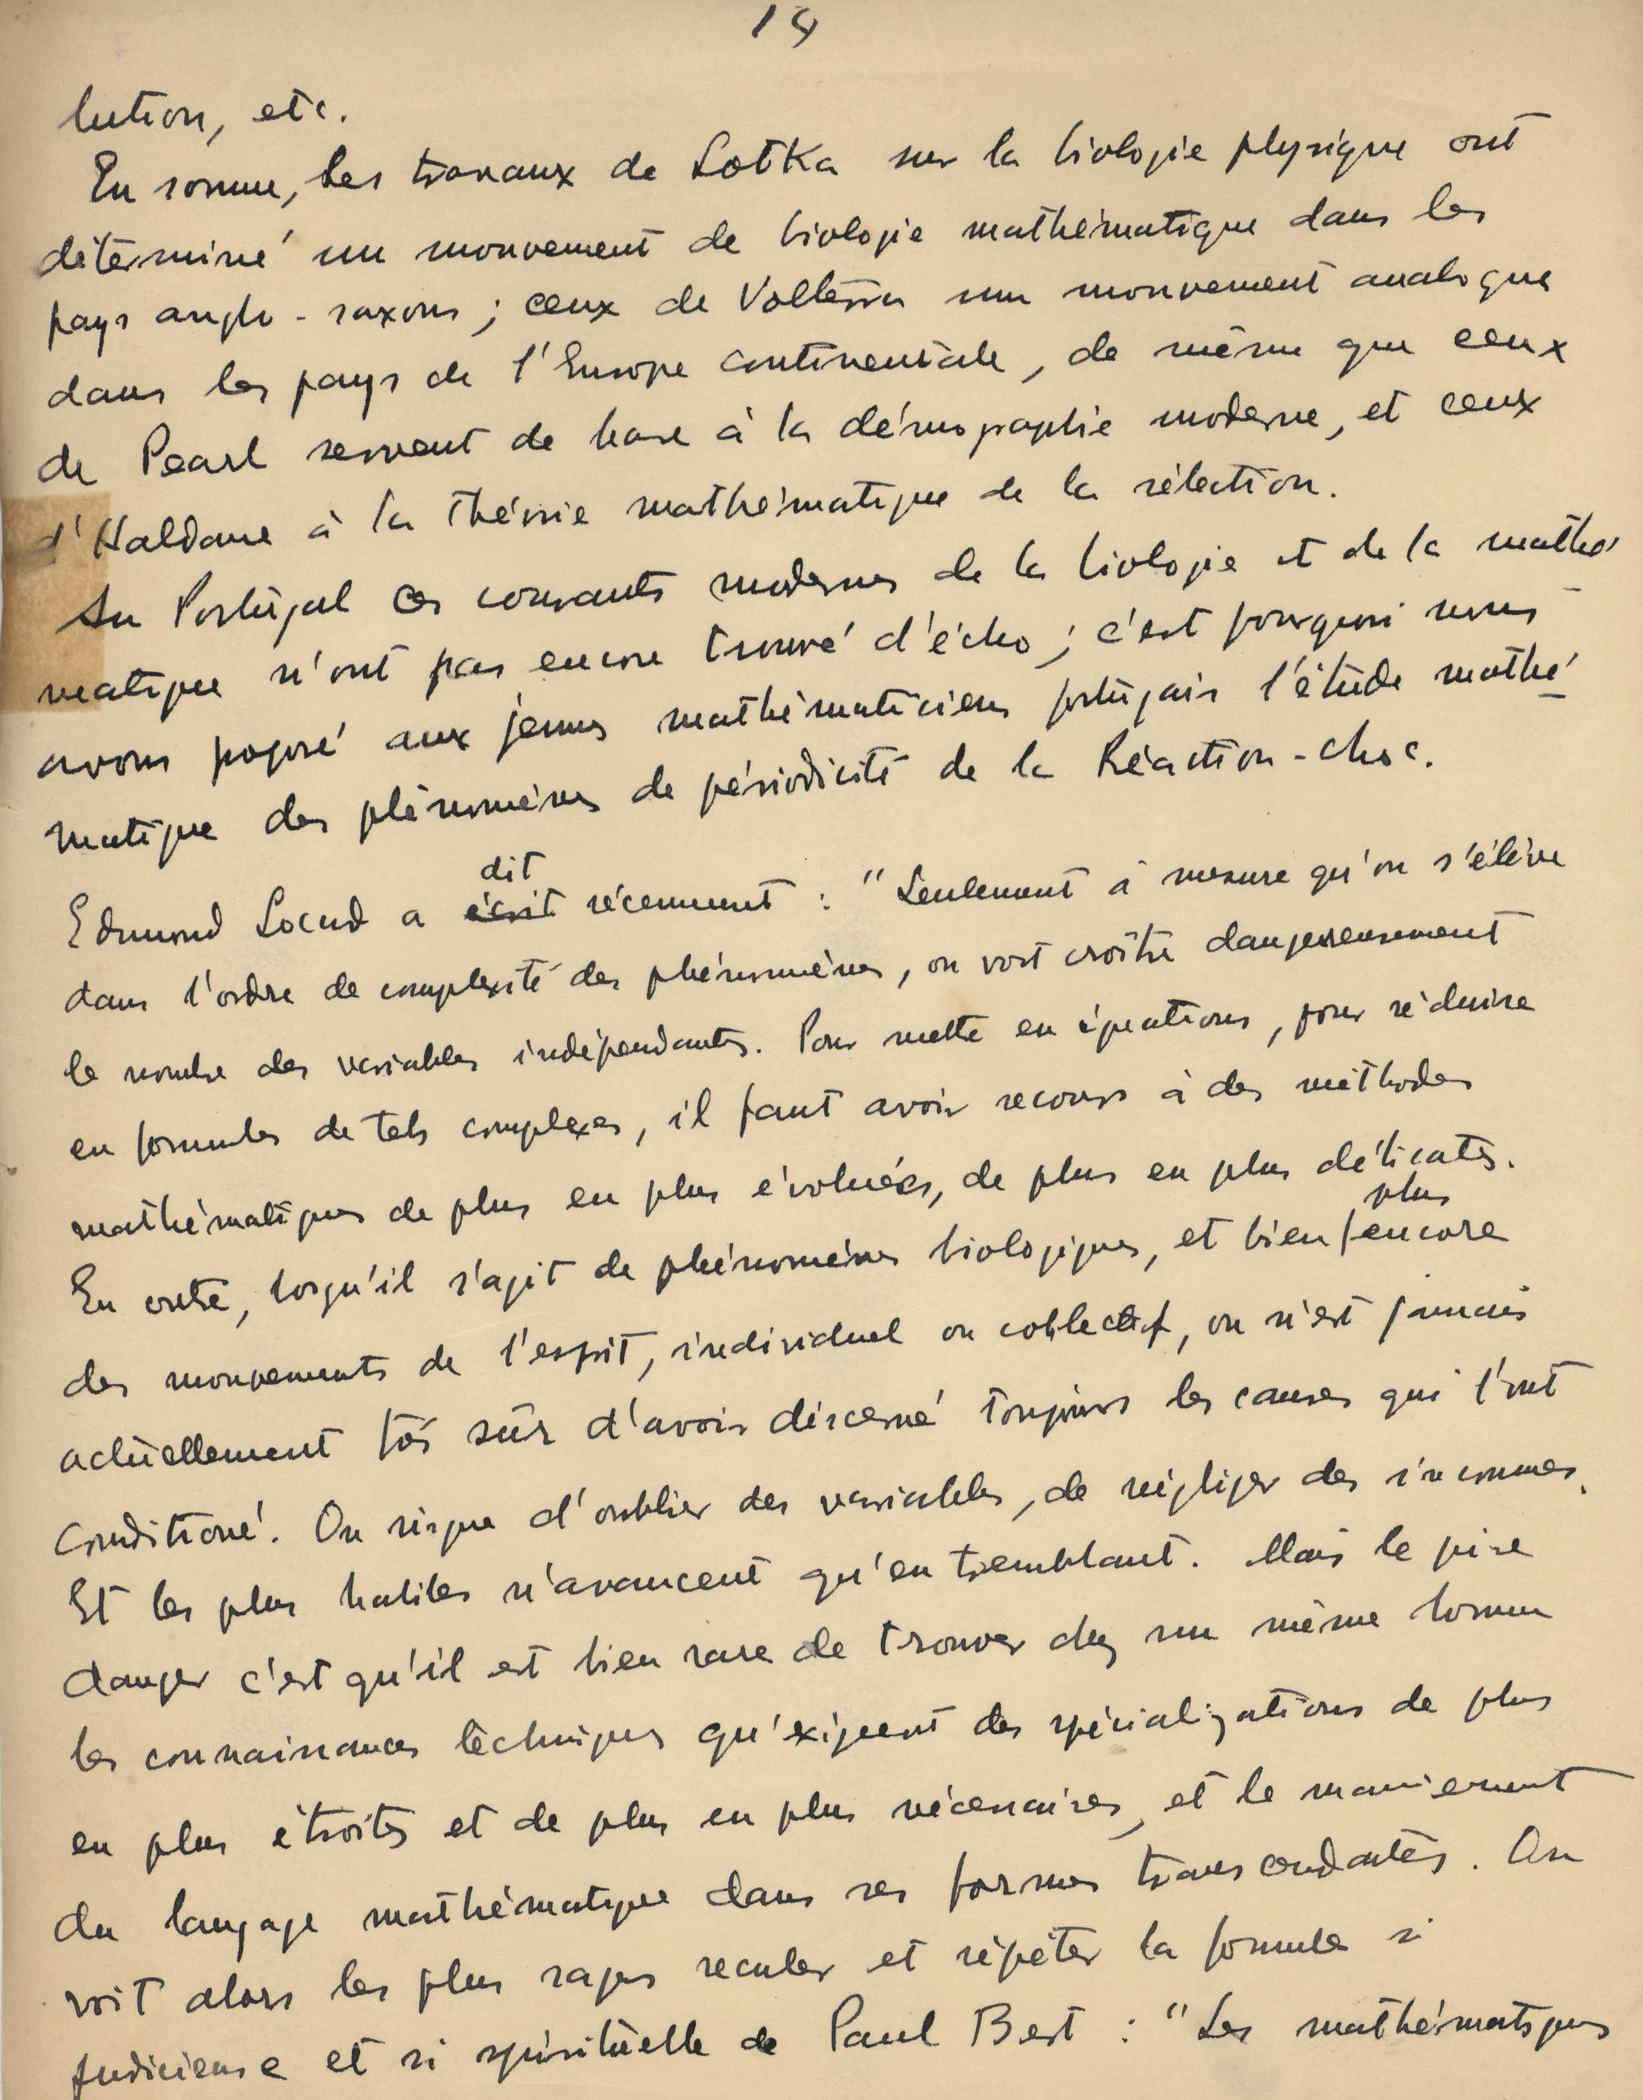 14
lution, etc.
En somme, les travaux de Lotka sur la biologie physique ont
déterminé un mouvement de biologie mathématique dans les
pays anglo-saxons ; ceux de Volterra un mouvement analogue
dans les pays de l'Europe continentale, de même que ceux
de Pearl servent de base à la démographie moderne, et ceux
d'Haldane à la théorie mathématique de la sélection.
Au Portugal ces courants modernes de la biologie et de la mathé-
matique n'ont pas encore trouvé d'écho ; c'est pourquoi nous
avons proposé aux jeunes mathématiciens portugais l'étude mathé-
matique des phénomènes de périodicité de la Réaction-choc.
dit
Edmond Locard a écrit récemment : "Seulement à mesure qu'on s'élève
dans l'ordre de complexité des phénomènes, on voit croître dangereusement
le nombre des variables indépendantes. Pour mettre en équations, pour réduire
en formules de tels complexes, il faut avoir recours à des méthodes
mathématiques de plus en plus évoluées, de plus en plus délicates.
plus
En outre, lorsqu'il s'agit de phénomènes biologiques, et bien encore
des mouvements de l'esprit, individuel ou collectif, on n'est jamais
actuellement sûr d'avoir discerné toujours les causes qui l'ont
conditioné. On risque d'oublier des variables, de négliger des inconnues.
Et les plus habiles n'avancent qu'en tremblant. Mais le pire
danger c'est qu'il est bien rare de trouver chez un même homme
les connaissances techniques qu'exigent des spécializations de plus
en plus étroites et de plus en plus nécessaires, et le maniement
du langage mathématique dans ses formes transcendantes. On
voit alors les plus sages reculer et répéter la formule si
judicieuse et si spirituelle de Paul Bert : "Les mathématiques